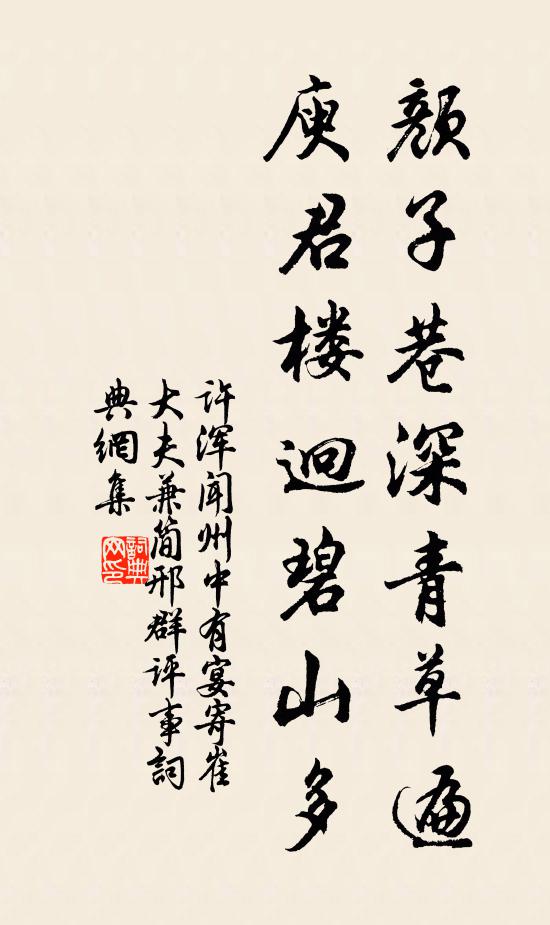 颜子巷深青草遍
庾君楼迥碧山多
许浑闻州中有宴寄崔
大夫兼简邢群评事词
典網集
詞典網印